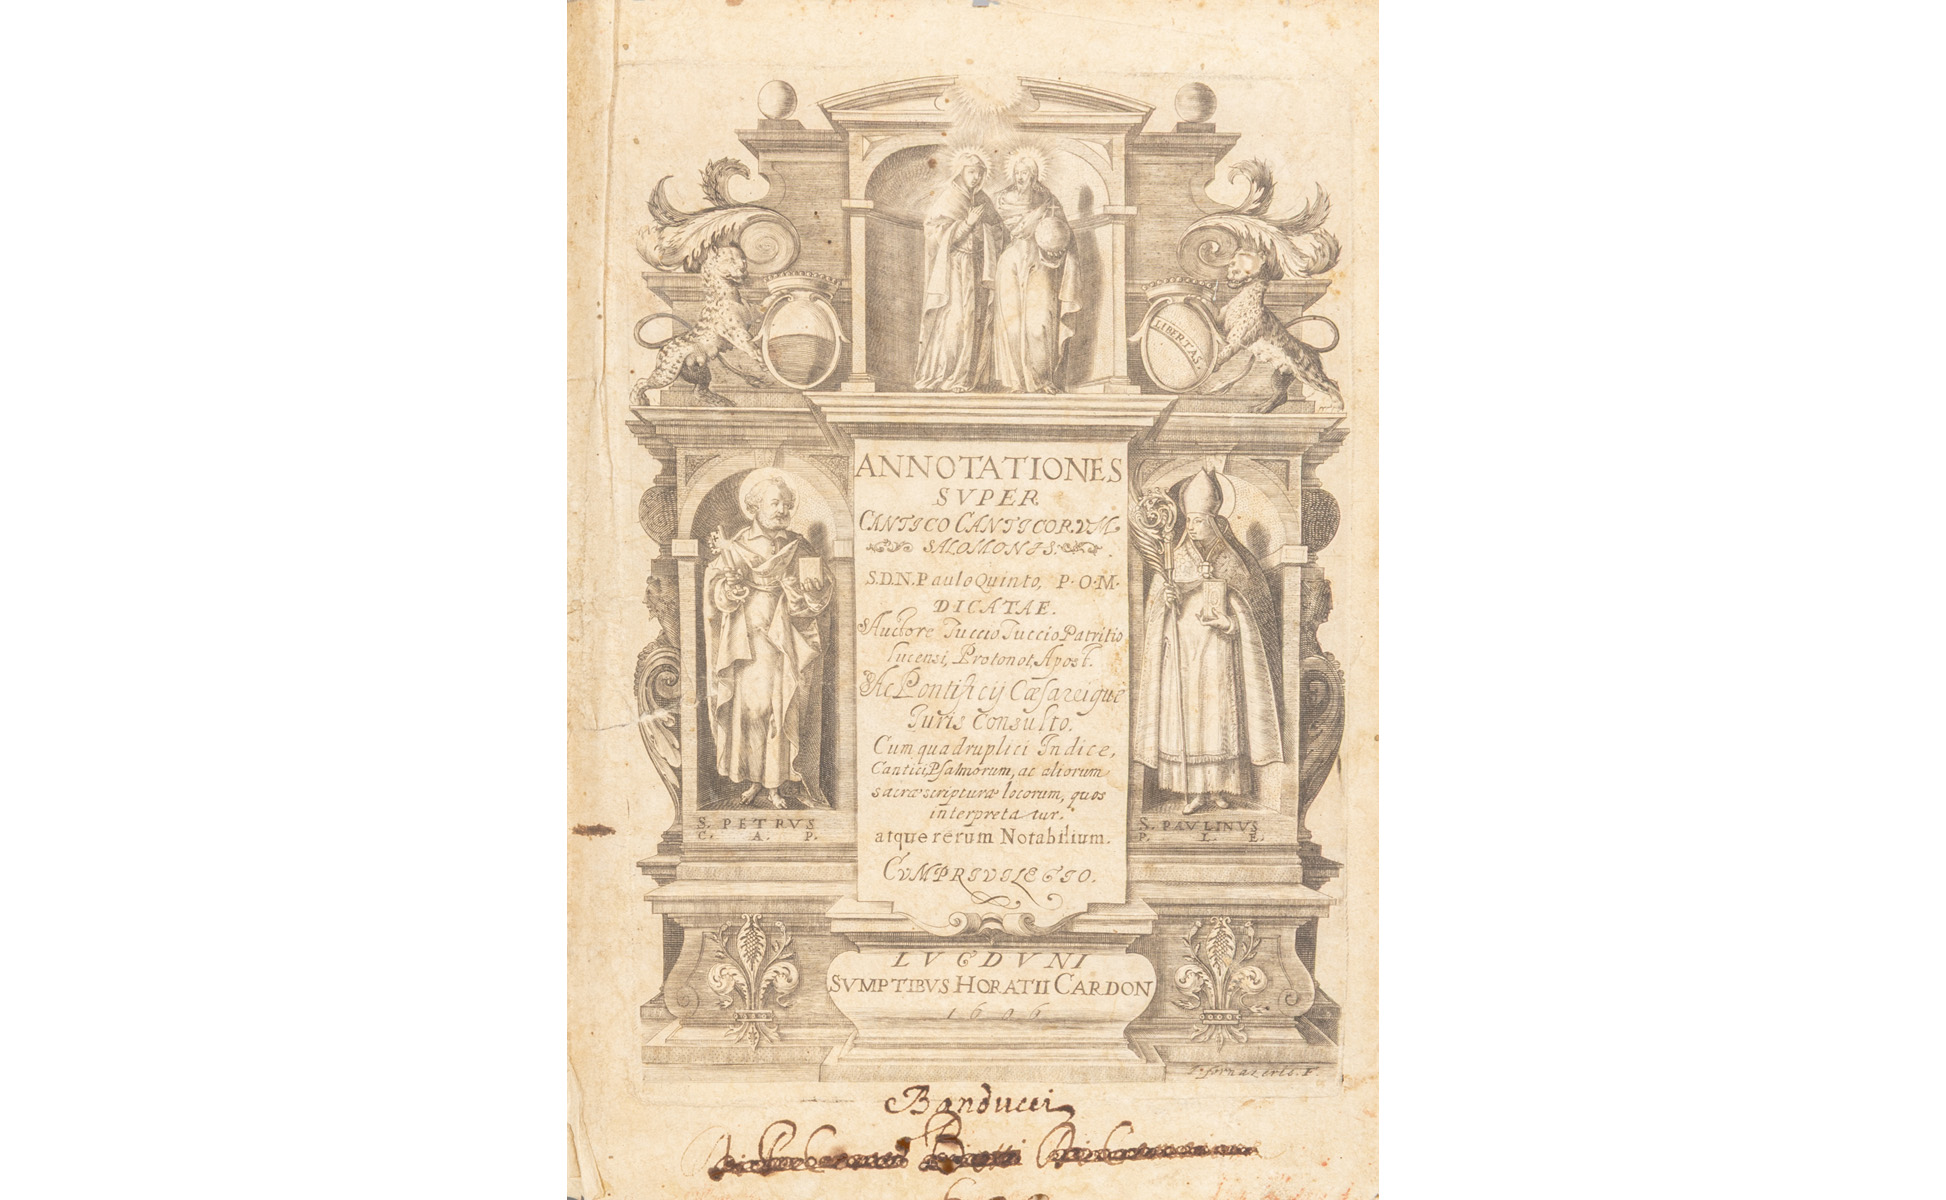 LIBERTAS.
ANNOTATIONES
SVPER
CANTICO CANTICORVM
SALOMONIS.
S.D.N. Paulo Quinto, P.O.M.
DICATAE.
Auctore Tuccio Tuccio Patritio
lucensi, Protonot, Apost.
Ac Pontificij Cæsareique
Iuris Consulto.
Cum quadruplici Indice,
Cantici, Psalmorum, ac aliorum
sacræ scripturæ locorum, quos
interpretatur.
atque rerum Notabilium.
CVM PRIVILEGIO.
S. PETRVS
C. A. P.
S. PAVLINVS
P. L. E.
LVGDVNI
SVMPTIBVS HORATII CARDON
1606
I. fornazeris. F.
Banducci